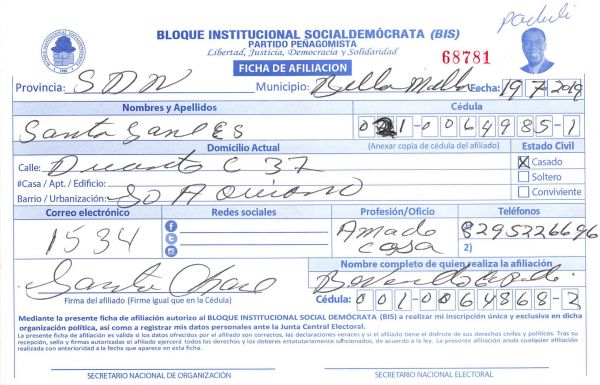 BLOQUE INSTITUCIONAL SOCIALDEMÓCRATA (BIS)
PARTIDO PEÑAGOMISTA
Libertad, Justicia, Democracia y Solidaridad
68781
FICHA DE AFILIACION
Provincia: SDN Municipio: Bella Fecha: 19/7/2019
Nombres y Apellidos Cédula
Santa 021-0064985-1
Domicilio Actual (Anexar copia de cédula del afiliado) Estado Civil
Calle: Duarte C 37 X Casado
#Casa / Apt. / Edificio: Soltero
Barrio / Urbanización: Conviviente
Correo electrónico Redes sociales Profesión/Oficio Teléfonos
1534 Amade casa 8295226696
2)
Nombre completo de quien realiza la afiliación
Santa
Firma del afiliado (Firme igual que en la Cédula) Cédula: 001-0064868-2
Mediante la presente ficha de afiliación autorizo al BLOQUE INSTITUCIONAL SOCIAL DEMÓCRATA (BIS) a realizar mi inscripción única y exclusiva en dicha
organización política, así como a registrar mis datos personales ante la Junta Central Electoral.
La presente ficha de afiliación es válida y los datos ofrecidos por el afiliado son correctos, las declaraciones veraces y si el afiliado tiene el disfrute de sus derechos civiles y políticos. Tras su
recepción, sello y firmas autorizadas el afiliado ejercerá todos los derechos y los deberes estatutariamente sancionados, de acuerdo a la ley. La presente afiliación anula cualquier afiliación
realizada con anterioridad a la fecha que aparece en esta ficha.
SECRETARIO NACIONAL DE ORGANIZACIÓN SECRETARIO NACIONAL ELECTORAL